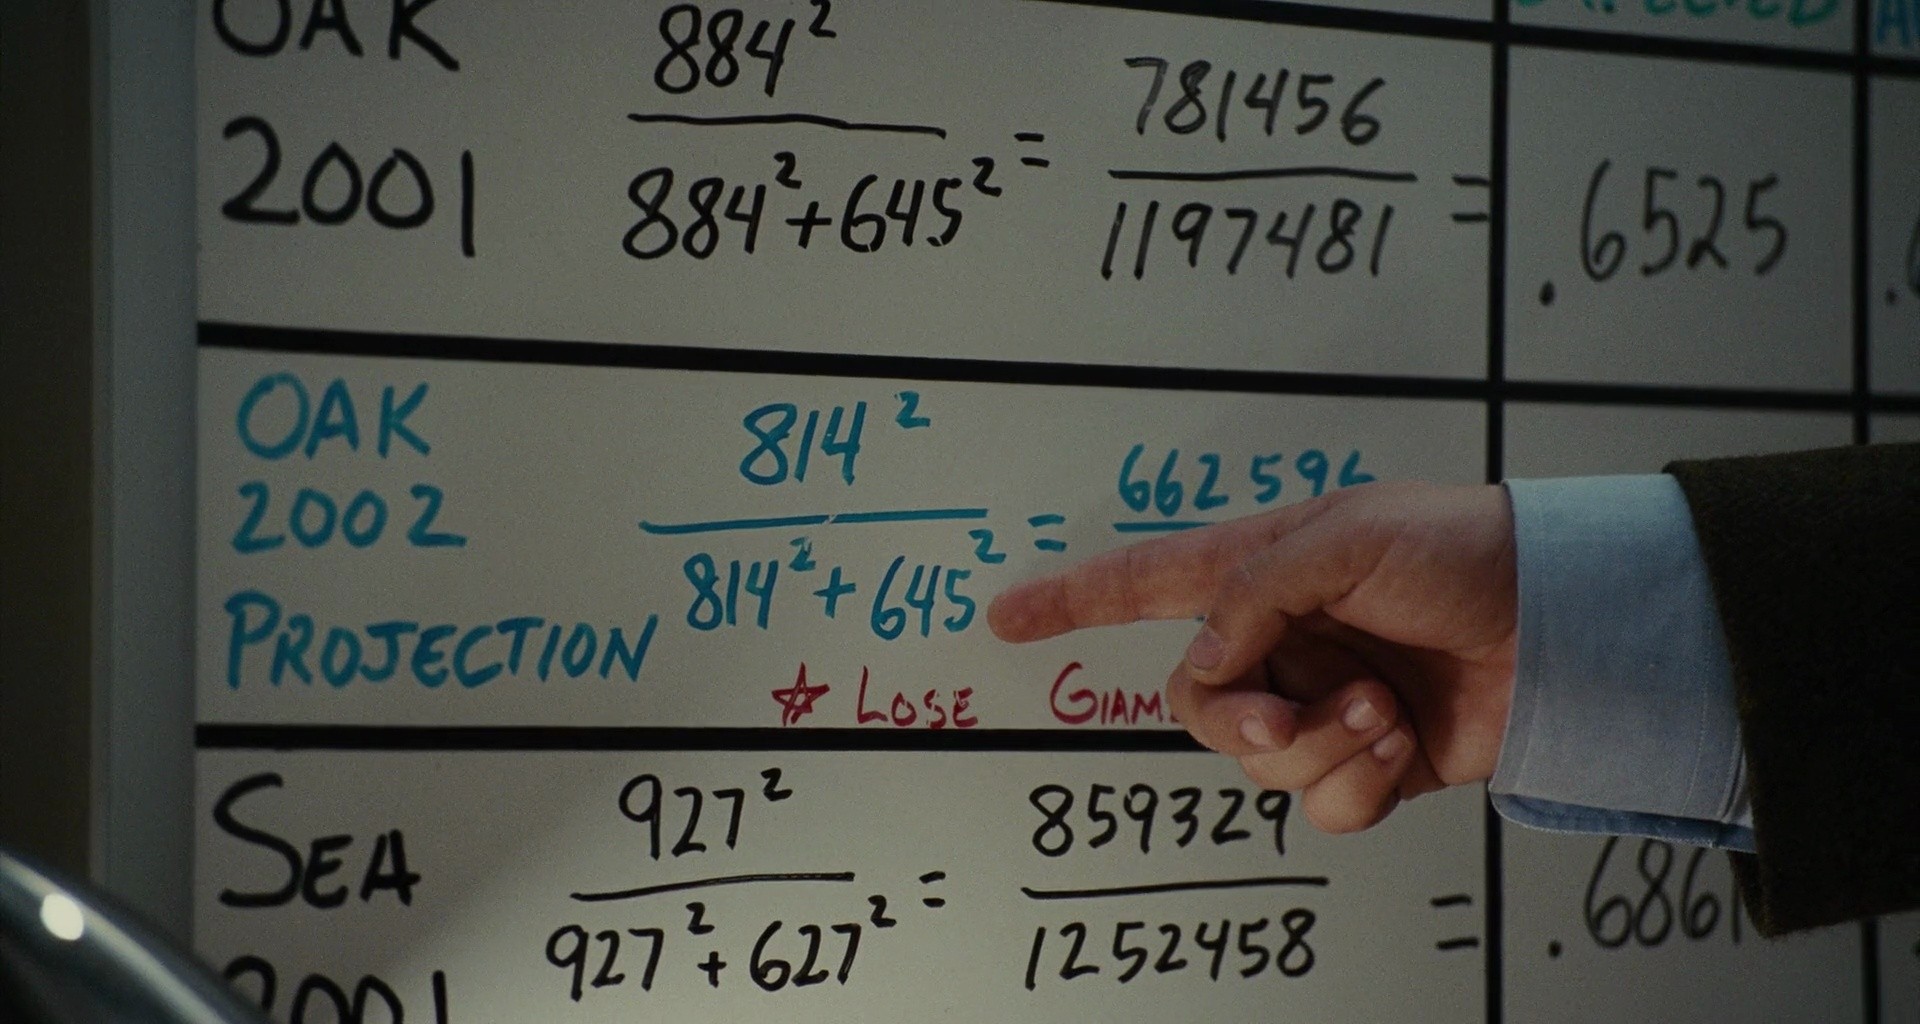 OAK
2001
884²
884²+645²
=
781456
1197481
=
.6525
OAK
2002
PROJECTION
814²
814²+645²
=
662596
* LOSE
SEA
2001
927²
927²+627²
=
859329
1252458
=
.6861